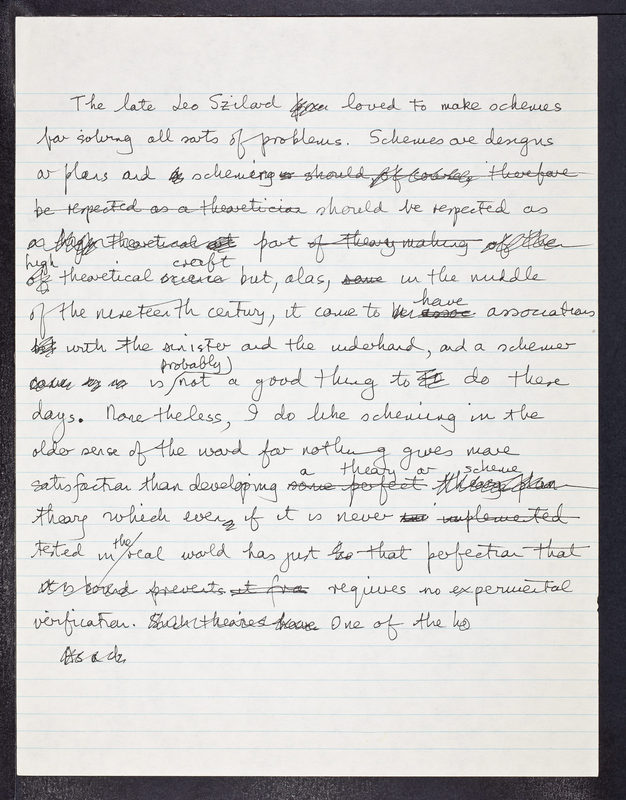 The late Leo Szilard loved to make schemes
for solving all sorts of problems. Schemes are designs
or plans and scheming should of course, therefore
be respected as a theoretician should be respected as
theoretical part of theory making
high craft
of theoretical science but, alas, in the middle
have
of the nineteenth century, it came to associations
with the sinister and the underhand, and a schemer
probably
is not a good thing to do these
days. Nonetheless, I do like scheming in the
older sense of the word for nothing gives more
a theory or scheme
satisfaction than developing some perfect
theory which even if it is never implemented
the
tested in real world has just that perfection that
prevents requires no experimental
verification. Such theories have One of the